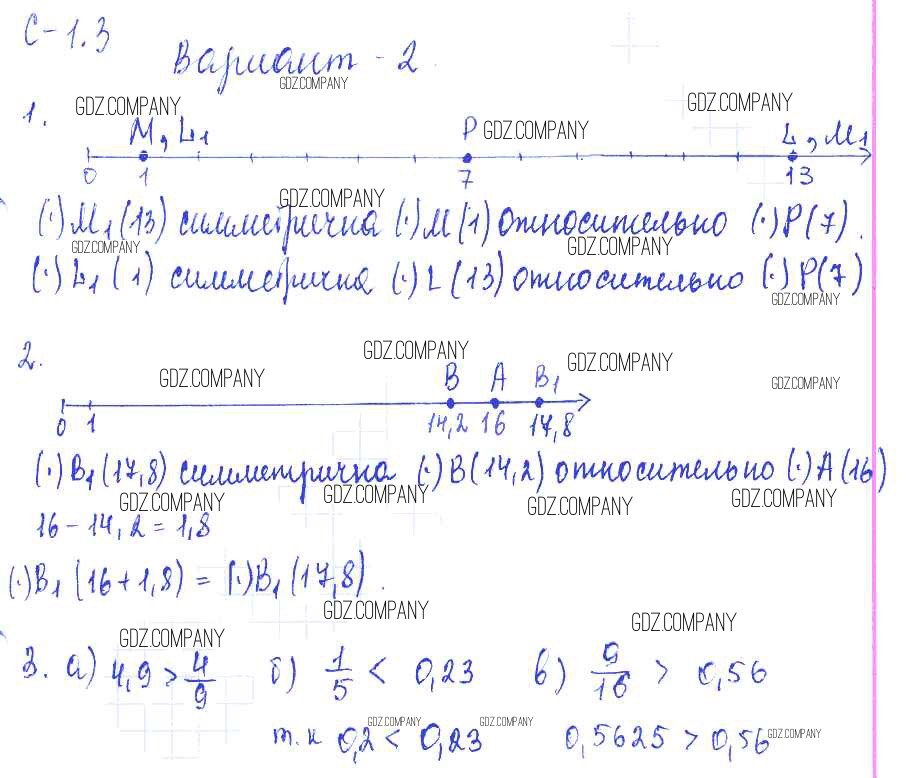 С-1.3
Вариант - 2.
GDZ.COMPANY
1. GDZ.COMPANY GDZ.COMPANY
M, L₁ P GDZ.COMPANY L, M₁
0 1 7 13
GDZ.COMPANY
(·) M₁ (13) симметрична (·) M (1) относительно (·) P (7).
GDZ.COMPANY GDZ.COMPANY
(·) L₁ (1) симметрична (·) L (13) относительно (·) P (7)
GDZ.COMPANY
2. GDZ.COMPANY
GDZ.COMPANY B A B₁ GDZ.COMPANY GDZ.COMPANY
0 1 14,2 16 17,8
(·) B₁ (17,8) симметрична (·) B (14,2) относительно (·) A (16)
GDZ.COMPANY GDZ.COMPANY GDZ.COMPANY GDZ.COMPANY
16 - 14,2 = 1,8
(·) B₁ (16 + 1,8) = (·) B₁ (17,8).
GDZ.COMPANY GDZ.COMPANY
GDZ.COMPANY
3. а) 4,9 > 4/9 б) 1/5 < 0,23 в) 9/16 > 0,56
GDZ.COMPANY GDZ.COMPANY
т.к 0,2 < 0,23 0,5625 > 0,56 GDZ.COMPANY